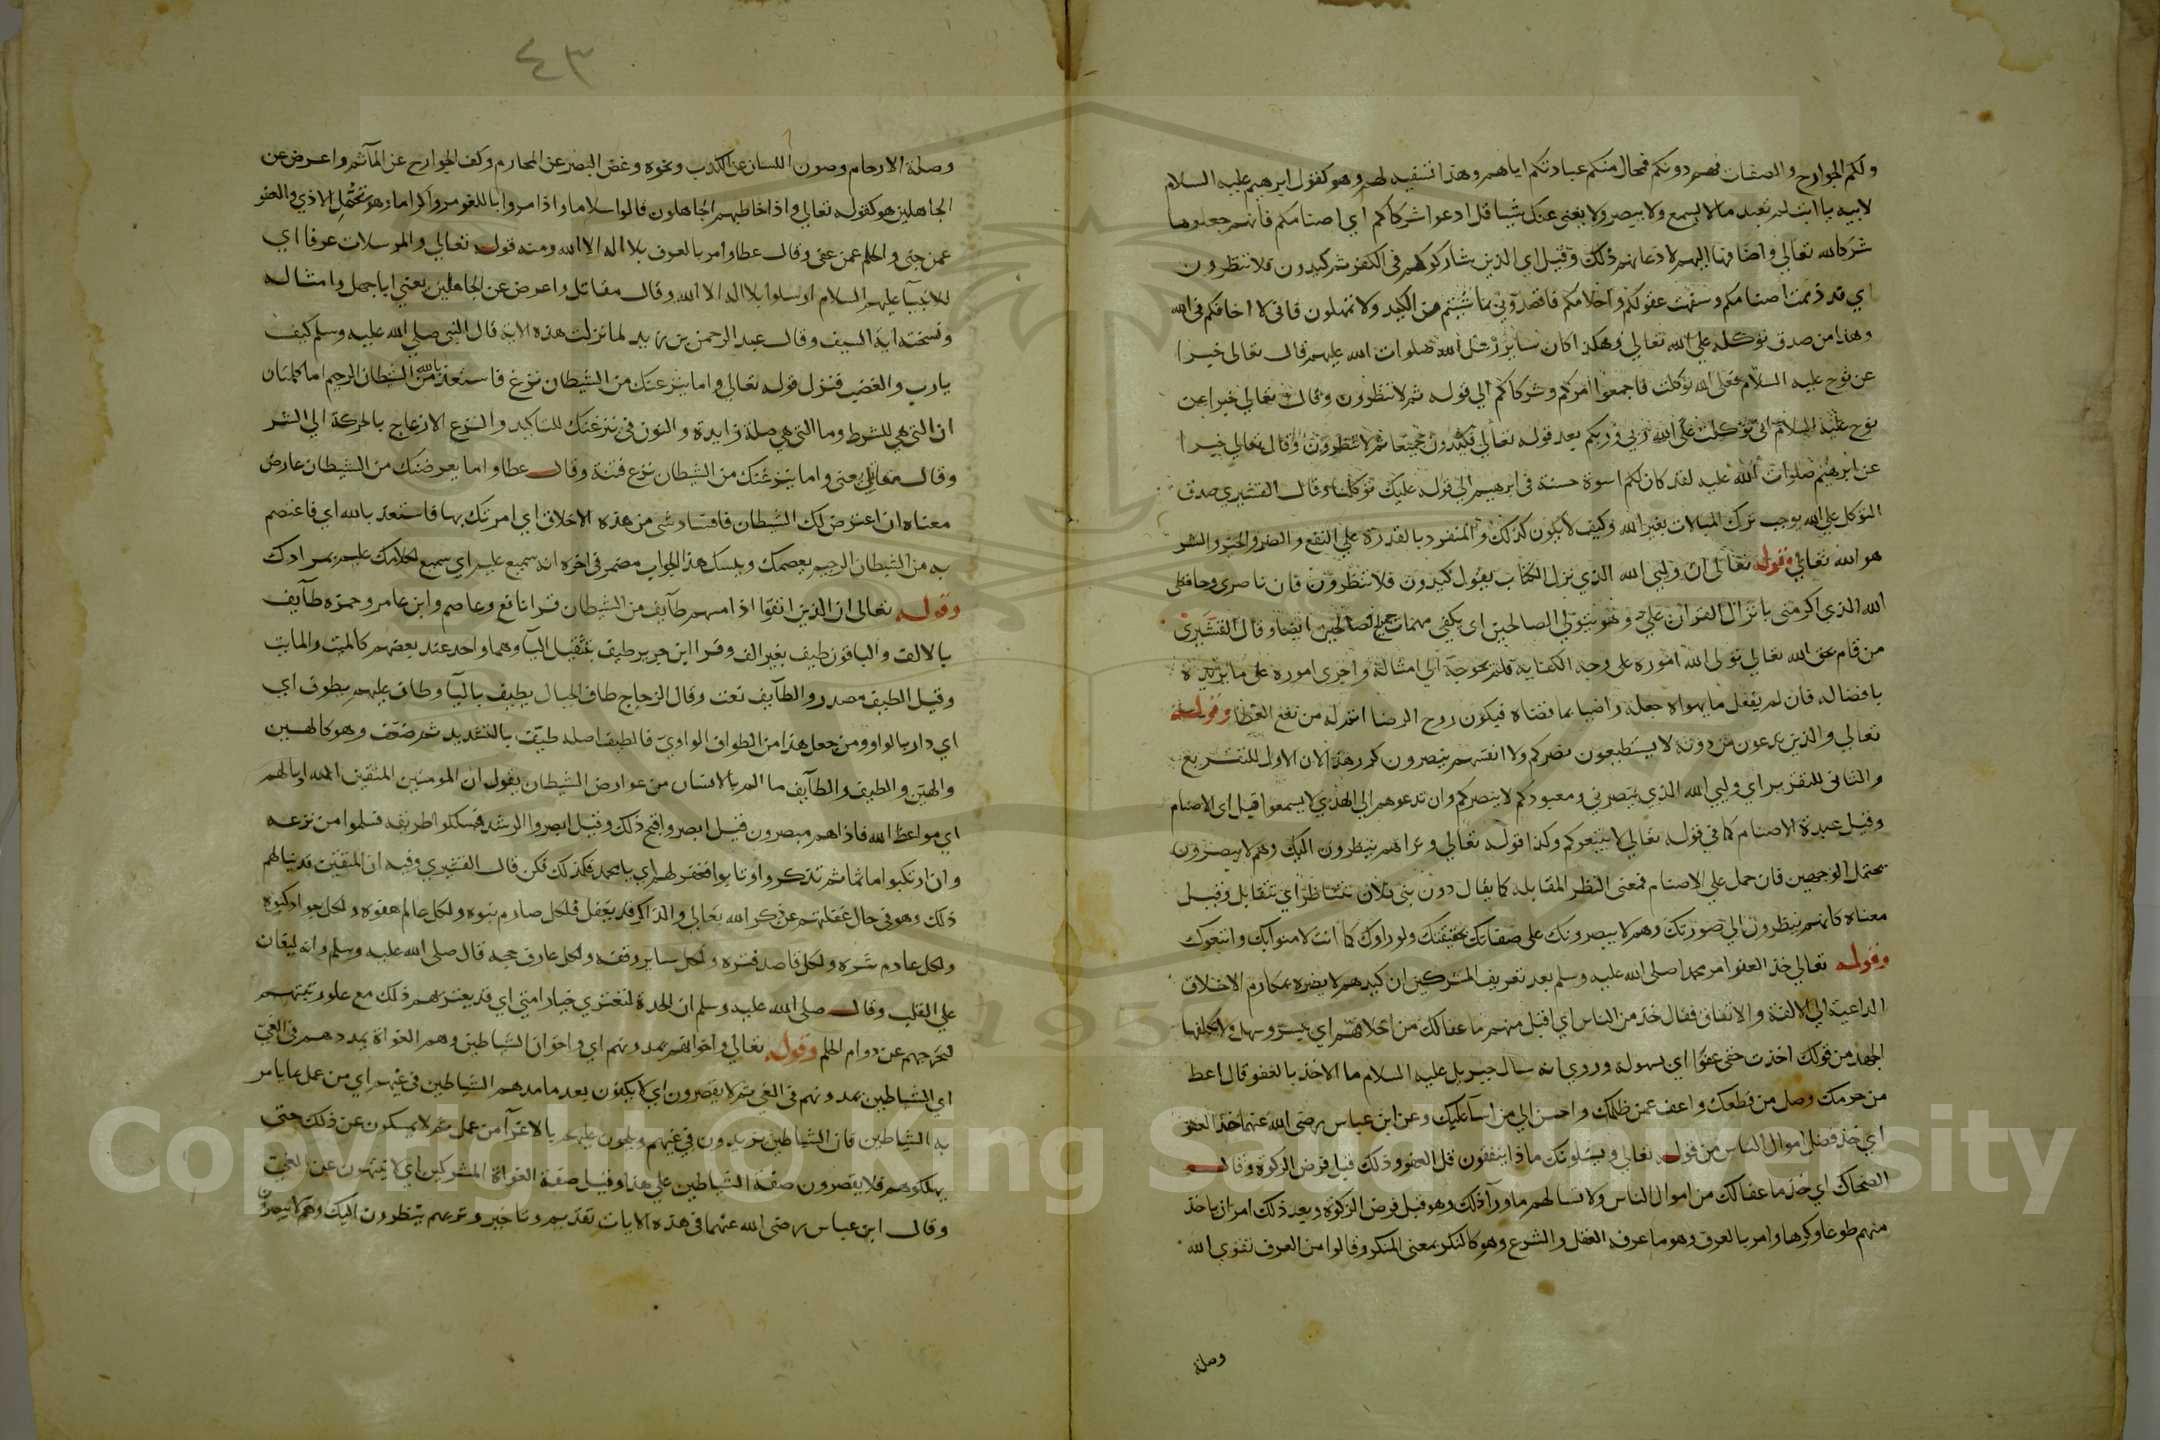 ولكم الجوارح والصفات فهم دونكم فمحال منكم عبادتكم اياهم وهذا تسفيه لهم وهو كقول ابرهيم عليه السلام
لابيه يا ابت لم تعبد ما لا يسمع ولا يبصر ولا يغني عنك شيئا قل ادعوا شركاكم اي اصنامكم فانهم جعلوها
شركا لله تعالي واضافها اليهم لادعايهم ذلك وقيل اي الذين شاركوكم في الكفر ثم كيدون فلا تنظرون
اي قد ذممت اصنامكم وسفهت عقولكم واحلامكم فاقصدوني بما شيتم من الكيد ولا تمهلون فاني لا اخافكم في الله
وهذا من صدق توكله علي الله تعالي وهكذا كان ساير رسل الله صلوات الله عليهم قال تعالي خبرا
عن نوح عليه السلام فعلي الله توكلت فاجمعوا امركم وشركاكم الي قوله ثم لا تنظرون وقال تعالي خبرا عن
هود عليه السلام اني توكلت علي الله ربي وربكم بعد قوله تعالي فكيدوني جميعا ثم لا تنظرون وقال تعالي خبرا
عن ابرهيم صلوات الله عليه لقد كان لكم اسوة حسنة في ابرهيم الي قوله عليك توكلنا وقال القشيري صدق
التوكل علي الله يوجب ترك المبالات بغير الله وكيف لا يكون كذلك والمتفرد بالقدرة علي النفع والضر والخير والشر
هو الله تعالي وقوله تعالي ان وليي الله الذي نزل الكتاب يقول كيدون فلا تنظرون فان ناصري وحافظي
الله الذي اكرمني بانزال القران علي وهو يتولي الصالحين اي يكفي مهمات جميع الصالحين ايضا وقال القشيري
من قام بحق الله تعالي تولي الله اموره علي وجه الكفاية فلم يحوجه الي امثاله واجري اموره علي ما يريده
بافضاله فان لم يفعل ما يهواه جعله راضيا بما قضاه فيكون روح الرضا اتم له من نفع العطا وقوله
تعالي والذين تدعون من دونه لا يستطيعون نصركم ولا انفسهم ينصرون كرر هذا لان الاول للتقريع
والثاني للتقرير اي وليي الله الذي ينصرني ومعبودكم لا ينصركم وان تدعوهم الي الهدي لا يسمعوا قيل اي الاصنام
وقيل عبدة الاصنام كما في قوله تعالي لا يتبعوكم وكذا قوله تعالي وتراهم ينظرون اليك وهم لا يبصرون
يحتمل الوجهين فان حمل علي الاصنام فمعني النظر المقابلة كما يقال دور بني فلان تتناظر اي تتقابل وقيل
معناه كانهم ينظرون الي صورتك وهم لا يبصرونك علي صفاتك بحقيقتك ولو راوك كما انت لامنوا بك واتبعوك
وقوله تعالي خذ العفو امر محمدا صلي الله عليه وسلم بعد تعريف المشركين ان كيدهم لا يضره بمكارم الاخلاق
الداعية الي الالفة والاتفاق فقال خذ من الناس اي اقبل منهم ما عفا لك من اخلاقهم اي تيسر وسهل ولا تكلفها
الجهد من قولك اخذت حقي عفوا اي بسهولة وروي انه سال جبريل عليه السلام ما الاخذ بالعفو قال اعط
من حرمك وصل من قطعك واعف عمن ظلمك واحسن الي من اسآ اليك وعن ابن عباس رضي الله عنهما خذ العفو
اي خذ فضل اموال الناس من قوله تعالي ويسئلونك ماذا ينفقون قل العفو وذلك قبل فرض الزكوة وقال
الضحاك اي خذ ما عفا لك من اموال الناس ولا تسالهم ما ورآ ذلك وهو قبل فرض الزكوة وبعد ذلك امر ان ياخذ
منهم طوعا وكرها وامر بالعرف وهو ما عرفه العقل والشرع وهو كالنكر بمعني المنكر وقالوا من العرف تقوي الله
وصلة
٤٣
وصلة الارحام وصون اللسان عن الكذب ونحوه وغض البصر عن المحارم وكف الجوارح عن المآثم واعرض عن
الجاهلين هو كقوله تعالي واذا خاطبهم الجاهلون قالوا سلاما واذا مروا باللغو مروا كراما وهو تحمل الاذي والعفو
عمن جني والحلم عمن عق وقال عطا وامر بالعرف بلا اله الا الله ومنه قوله تعالي والمرسلات عرفا اي
للانبيآ عليهم السلام ارسلوا بلا اله الا الله وقال مقاتل واعرض عن الجاهلين يعني ابا جهل وامثاله
ونسخته اية السيف وقال عبد الرحمن بن زيد لما نزلت هذه الاية قال النبي صلي الله عليه وسلم كيف
يا رب والغضب فنزل قوله تعالي واما ينزغنك من الشيطان نزغ فاستعذ بالله من الشيطان الرجيم اما كلمتان
ان التي هي للشرط وما التي هي صلة زايدة والنون في ينزغنك للتاكيد والنزغ الازعاج بالحركة الي الشر
وقال مقاتل يعني واما ينزغنك من الشيطان نزغ فتنة وقال عطا واما يعرضنك من الشيطان عارض
معناه ان اعترض لك الشيطان فافساد شي من هذه الاخلاق اي امرتك بها فاستعذ بالله اي فاعتصم
به من الشيطان الرجيم يعصمك ويمسك هذا الجواب مضمر في اخره انه سميع عليم اي سميع لكلامك عليم بمرادك
وقوله تعالي ان الذين اتقوا اذا مسهم طآيف من الشيطان قرا نافع وعاصم وابن عامر وحمزه طآيف
بالالف والباقون طيف بغير الف وقرا ابن جبير طيف بتثقيل اليآ وهما واحد عند بعضهم كالميت والمايت
وقيل الطيف مصدر والطآيف نعت وقال الزجاج طاف الخيال يطيف باليآ وطاف عليهم يطوف اي
اي دار بالواو ومن جعل هذا من الطواف الواوي فالطيف اصله طيّف بالتشديد ثم ضعف وهو كالهين
والهيّن والطيف والطآيف ما الم بالانسان من عوارض الشيطان يقول ان المومنين المتقين الله اذا نالهم
اي مواعظ الله فاذا هم مبصرون قيل ابصروا قبح ذلك وقيل ابصروا الرشد فسلكوا طريقه فسلموا من نزغه
وان ارتكبوا ماثما ثم تذكروا وتابوا فغفر لهم اي يا محمد فكذلك فكن قال القشيري وفيه ان المتقين قد ينالهم
ذلك وهو في حال غفلتهم عن ذكر الله تعالي والذاكر قد يغفل فلكل صارم نبوة ولكل عالم هفوة ولكل جواد كبوة
ولكل عادم شره ولكل قاصد فتره ولكل ساير وقفه ولكل عارف حجبه قال صلي الله عليه وسلم وانه ليغان
علي القلب وقال صلي الله عليه وسلم ان الحدة لتعتري خيار امتي اي قد يعتريهم ذلك مع علو رتبتهم
فتخرجهم عن دوام الحلم وقوله تعالي واخوانهم يمدونهم اي واخوان الشياطين وهم الغواة يمددهم في الغي
اي الشياطين يمدونهم في الغي ثم لا يقصرون اي لا يكفون بعد ما مدهم الشياطين في غيهم اي من عمل بما يامر
به الشياطين فان الشياطين يزيدون في غيهم ويلحون عليهم بالاغرآ من عمل ثم لا يمسكون عن ذلك حتي
يهلكوهم فلا يقصرون صفة الشياطين علي هذا وقيل صفة الغواة المشركين اي لا ينتهون عن الغي
وقال ابن عباس رضي الله عنهما في هذه الايات تقديم وتاخير وتريهم ينظرون اليك وهم لا يبصرون
Copyright © King Saud University
1957